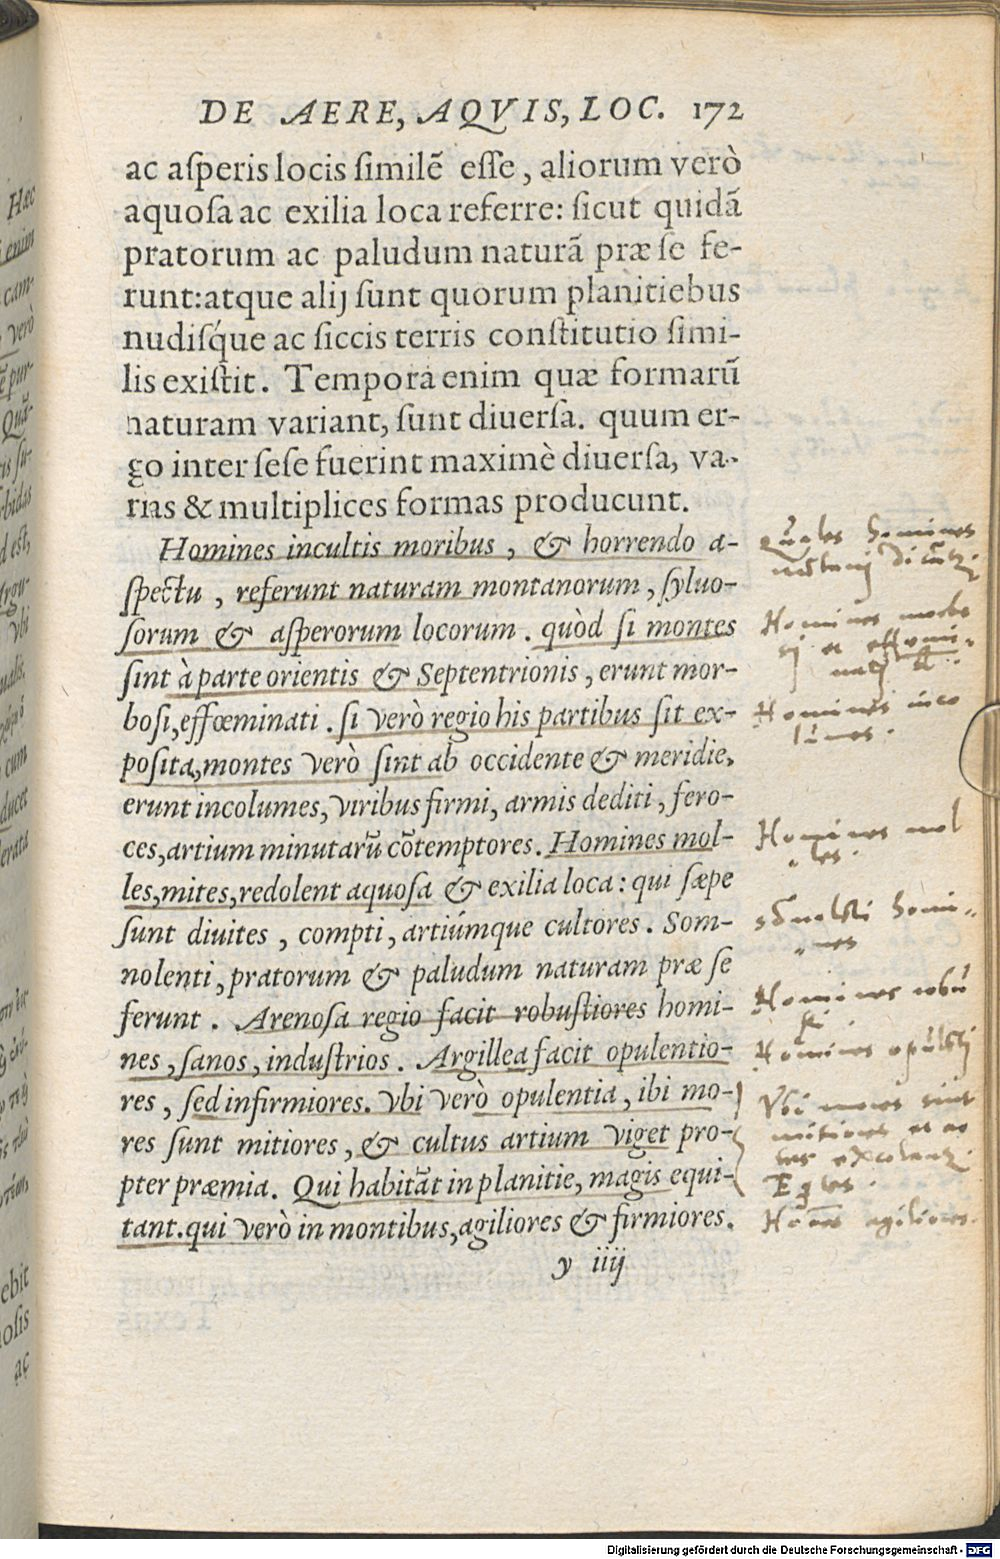 DE AERE, AQVIS, LOC. 172
ac aſperis locis ſimilẽ eſſe, aliorum verò
aquoſa ac exilia loca referre: ſicut quidã
pratorum ac paludum naturã præ ſe fe-
runt: atque alij ſunt quorum planitiebus
nudiſq́ue ac ſiccis terris conſtitutio ſimi-
lis exiſtit. Tempora enim quæ formarũ
naturam variant, ſunt diuerſa. quum er-
go inter ſeſe fuerint maximè diuerſa, va-
rias & multiplices formas producunt.
Homines incultis moribus, & horrendo a-
ſpectu, referunt naturam montanorum, ſyluo-
ſorum & aſperorum locorum. quòd ſi montes
ſint à parte orientis & Septentrionis, erunt mor-
boſi, effœminati. ſi verò regio his partibus ſit ex-
poſita, montes verò ſint ab occidente & meridie,
erunt incolumes, viribus firmi, armis dediti, fero-
ces, artium minutarũ cõtemptores. Homines mol-
les, mites, redolent aquoſa & exilia loca: qui ſæpe
ſunt diuites, compti, artiúmque cultores. Som-
nolenti, pratorum & paludum naturam præ ſe
ferunt. Arenoſa regio facit robuſtiores homi-
nes, ſanos, induſtrios. Argillea facit opulentio-
res, ſed infirmiores. vbi verò opulentia, ibi mo-
res ſunt mitiores, & cultus artium viget pro-
pter præmia. Qui habitãt in planitie, magis equi-
tant. qui verò in montibus, agiliores & firmiores.
y iiij
Homines
Homines morbo
sj et effemi-
natj
Homines inco
lumes.
Homines mol
les.
homi-
nes
Homines robu
sti
Homines
Vbi mores sint
mitiores et ar
tes
agiliores.
Hæc
enim
cam-
verò
pur-
Quã-
ſu-
rbidas
d eſt,
vbi
cum
ducet
erata
ebit
noſis
ac
Digitalisierung gefördert durch die Deutsche Forschungsgemeinschaft - DFG